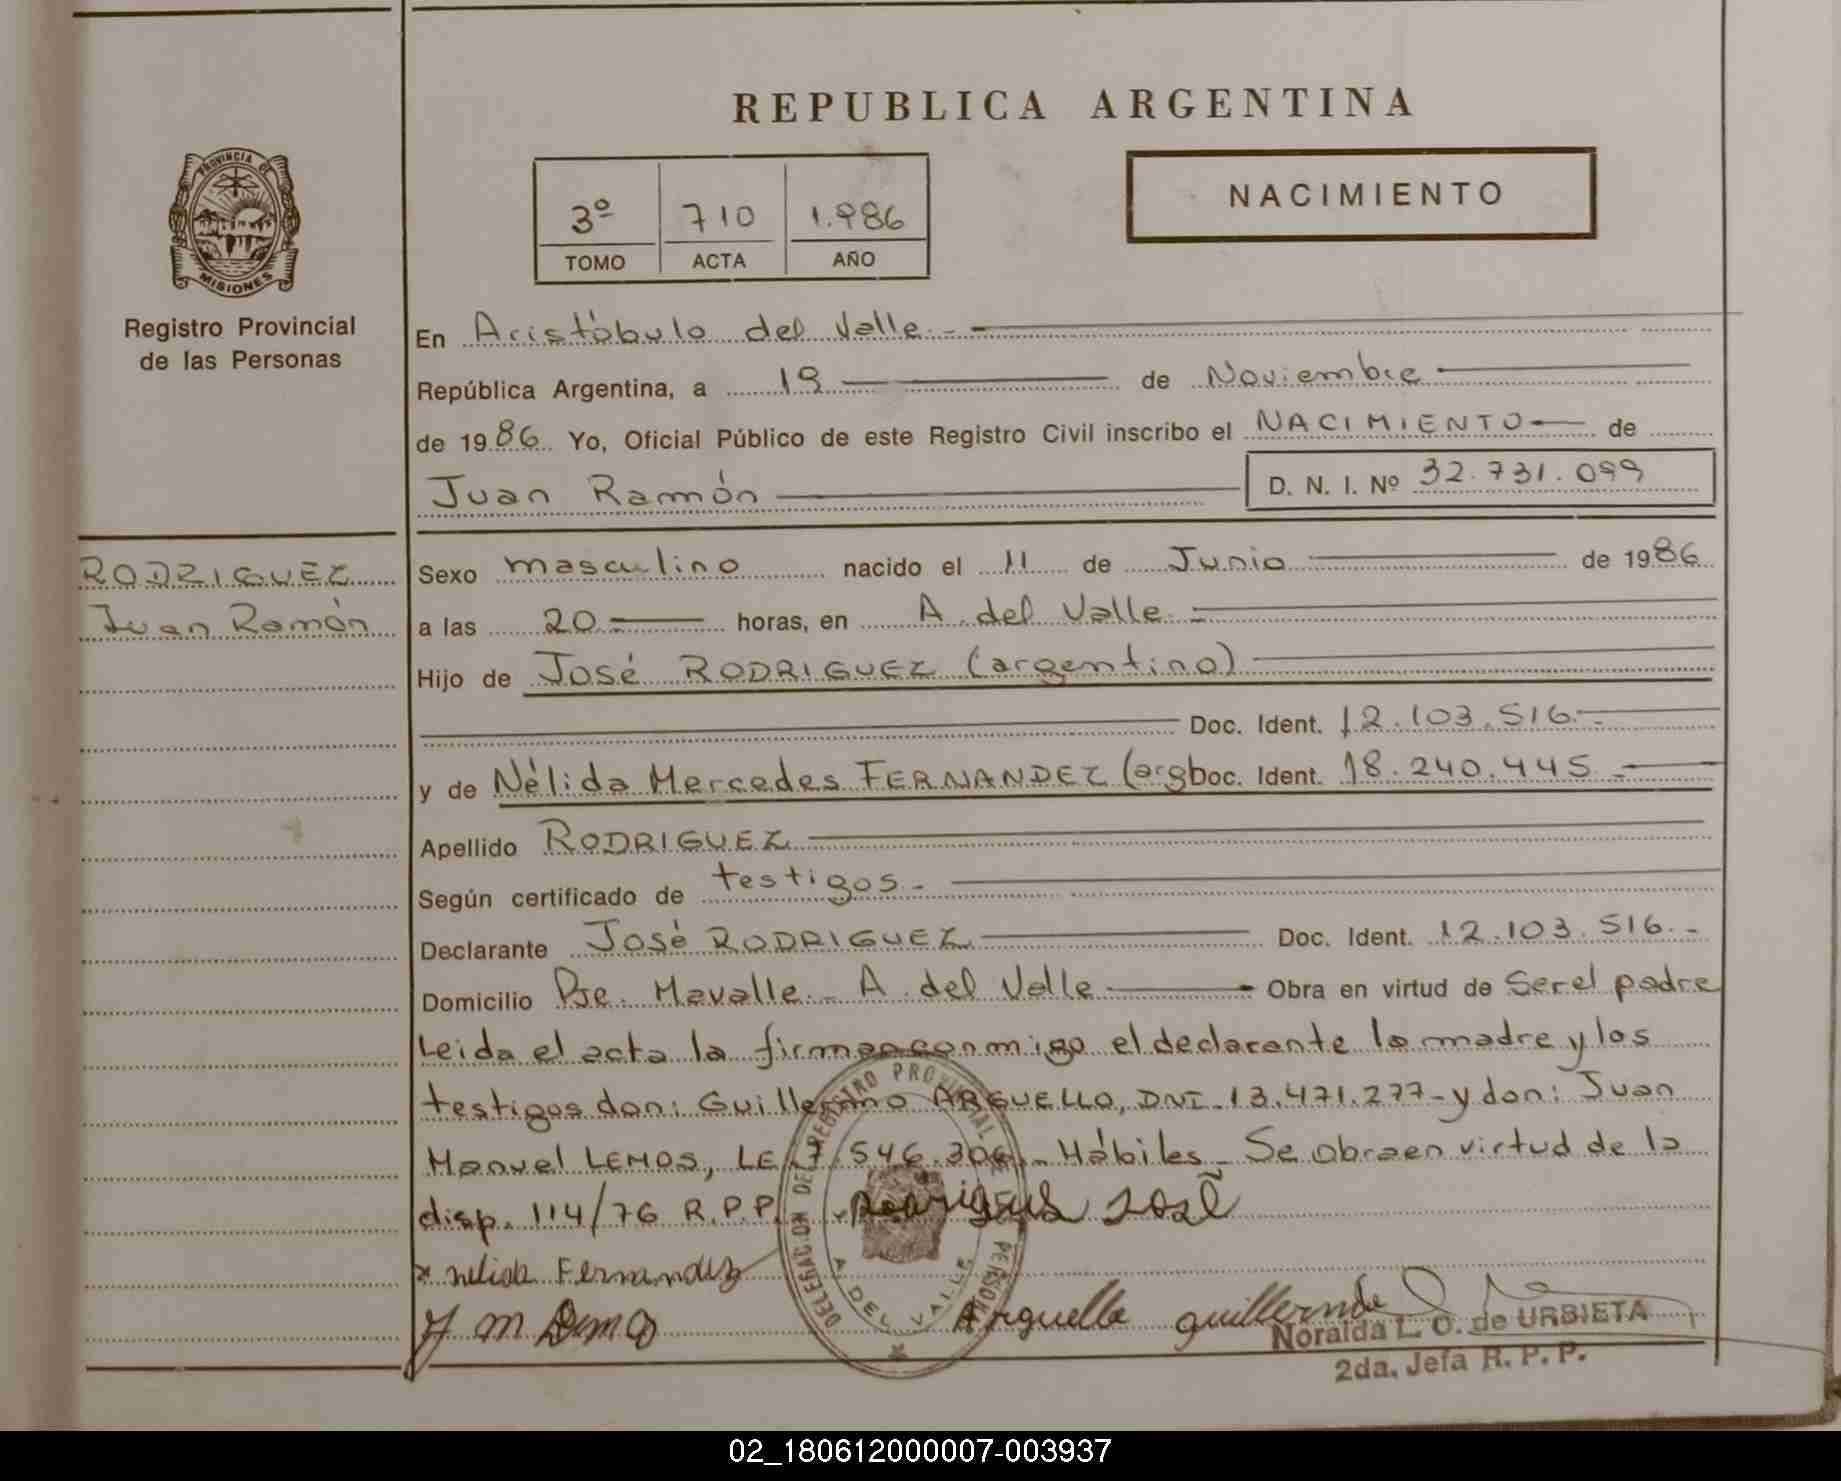 REPUBLICA ARGENTINA
PROVINCIA DE
MISIONES
Registro Provincial
de las Personas
3º 710 1.986
TOMO ACTA AÑO
NACIMIENTO
En Aristóbulo del Valle.-
República Argentina, a 19 de Noviembre
de 1986. Yo, Oficial Público de este Registro Civil inscribo el NACIMIENTO de
Juan Ramón D. N. I. Nº 32.731.099
RODRIGUEZ
Juan Ramón
Sexo masculino nacido el 11 de Junio de 1986
a las 20.- horas, en A. del Valle.-
Hijo de José RODRIGUEZ (argentino)
Doc. Ident. 12.103.516.-
y de Nélida Mercedes FERNANDEZ (arg Doc. Ident. 18.240.445.-
Apellido RODRIGUEZ
Según certificado de testigos.-
Declarante José RODRIGUEZ Doc. Ident. 12.103.516.-
Domicilio Pje. Mavalle.- A. del Valle Obra en virtud de Ser el padre
Leida el acta la firman conmigo el declarante la madre y los
testigos don: Guillermo ARGUELLO, DNI. 13.471.277- y don: Juan
Manuel LEMOS, LE. 7.546.306.- Hábiles.- Se obra en virtud de la
disp. 114/76 R.P.P.
Rodrigues José
x nelida Fernandez
J M Lemo
Arguello guillermo
DELEGACION DE REGISTRO PROVINCIAL DE PERSONAS
A. DEL VALLE
Noralda L. O. de URBIETA
2da. Jefa R. P. P.
02_180612000007-003937